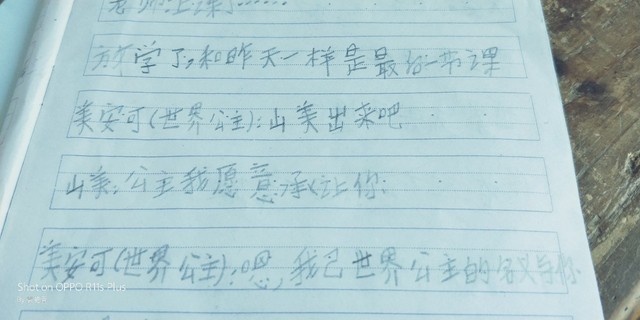 老师:上课了……
放学了,和昨天一样是最后一节课
美安可(世界公主):山美出来吧
山美:公主我愿意承让你:
美安可(世界公主):嗯,我已世界公主的名义与你
Shot on OPPO R11s Plus